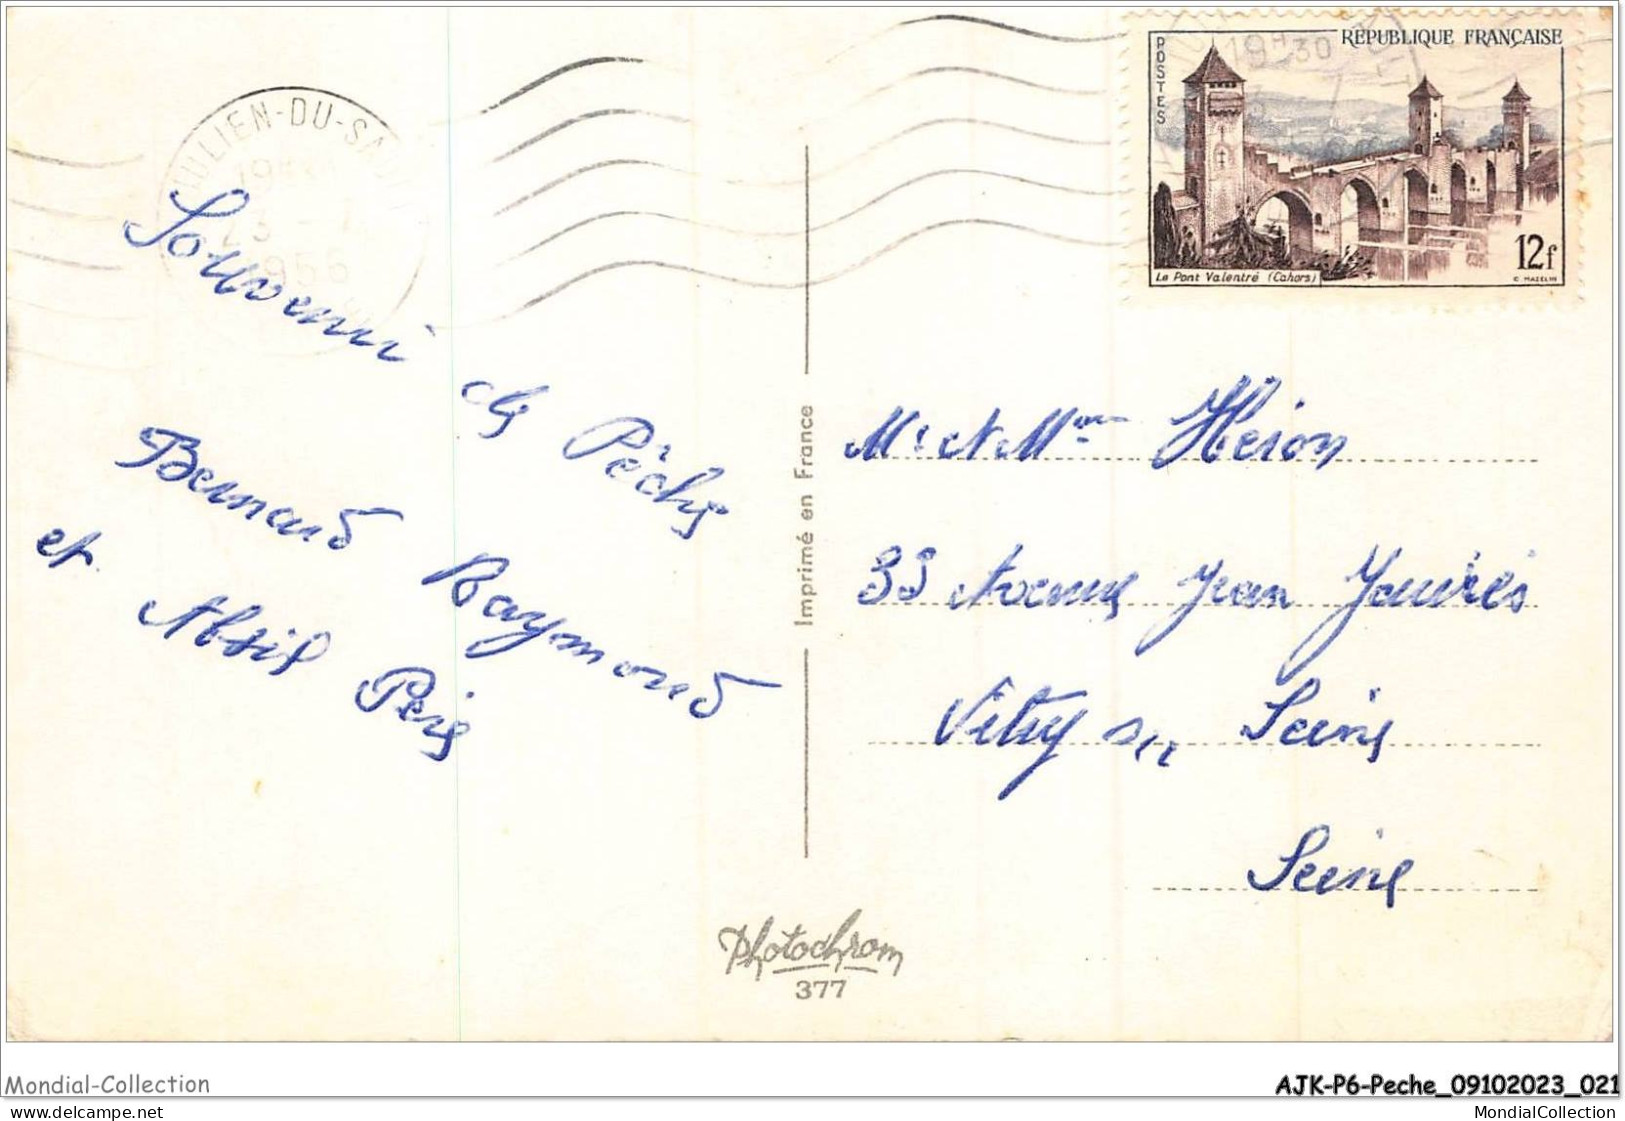 JULIEN-DU-SAULT
19H30
23 - 4
1956
POSTES
REPUBLIQUE FRANÇAISE
19H30
Le Pont Valentré (Cahors)
12f
C. MAZELIN
Souvenir
des Pêches
Bernard Raymond
et
Imprimé en France
Mr et Mme Héron
33 Avenue Jean Jaurès
Vitry sur Seine
Seine
Photochrom
377
Mondial-Collection
AJK-P6-Peche_09102023_021
delcampe.net
MondialCollection